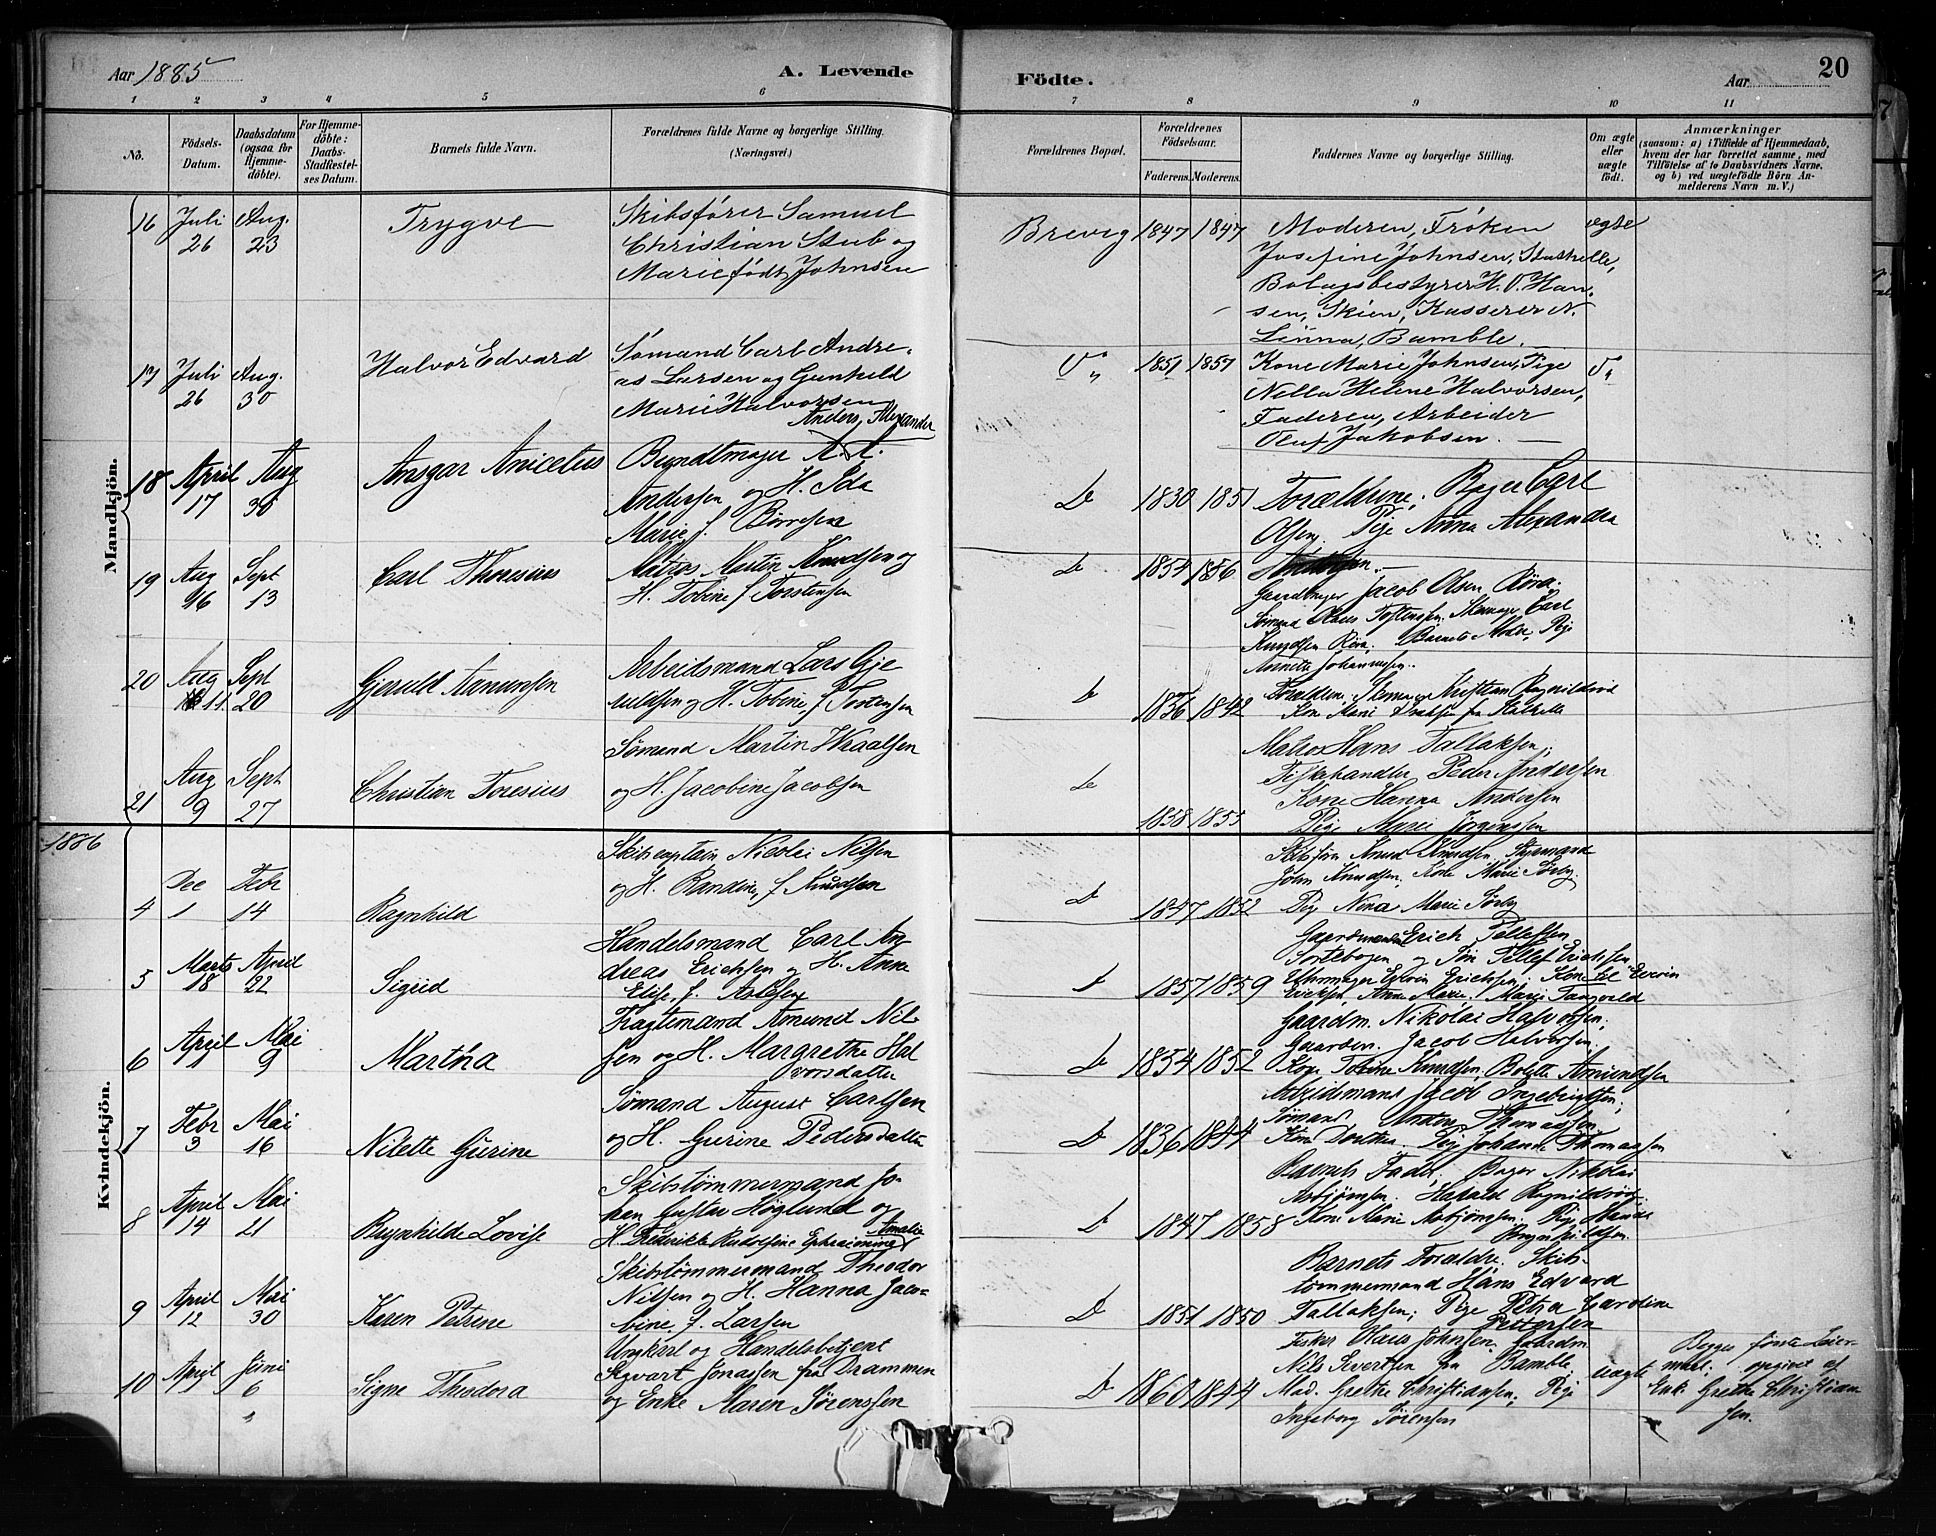 Aar 1885
A. Levende
Födte.
Aar
20
1 2 3 4 5 6 7 8 9 10 11
No.
Födsels-Datum.
Daabsdatum (ogsaa for Hjemme-döbte).
For Hjemme-döbte: Daabs-Stadfæstel-ses Datum.
Barnets fulde Navn.
Forældrenes fulde Navne og borgerlige Stilling. (Næringsvei.)
Forældrenes Bopæl.
Forældrenes Födselsaar.
Faderens. Moderens.
Faddernes Navne og borgerlige Stilling.
Om ægte eller uægte födt.
Anmærkninger
(saasom: a) i Tilfælde af Hjemmedaab, hvem der har forrettet samme, med Tilföielse af to Daabsvidners Navne, og b) ved uægtefödte Börn An-melderens Navn m. V.)
Mandkjön.
16 Juli 26 Aug. 23 Trygve
Skibsfører Samuel
Christian Stub og
Marie født Johnsen
Brevig 1847 1847
Moderen, Frøken
Josefine Johnsen, Stathelle,
Bolagsbestyrer H. O. Han-
sen, Skien, Kasserer N.
Linna, Bamble.
ægte
17 Juli 26 Aug. 30 Halvor Edvard
Sømand Carl Andre-
as Larsen og Gunhild
Marie Halvorsen
1851 1857
Kone Marie Johnsen, Pige
Nella Helene Halvorsen,
Faderen, Arbeider
Oluf Jakobsen.
18 April 17 Aug 30 Ansgar Anicetus
Anders Alexander
Bundtmager A. A.
Andersen og H. Ida
Marie f. Børresen
Do 1830 1851
Forældrene, Bager Carl
Olsen, Pige Anna Alexandra
Andersen.
19 Aug 16 Sept 13 Carl Thoresius
Matros Martin Knudsen og
H. Tobine f Torstensen
Do 1854 1856
Gaardbruger Jacob Olsen Røra.
Sømand Olaus Torstensen,
Carl
Knudsen Røra. Barnets Moder, Pige
Annette Johannessen.
20 Aug 11. Sept 20 Gjeruld Aanunsen
Arbeidsmand Lars Gje
ruldsen og H. Tobine, f Torstensen
Do 1836 1842
Forældrene, Kristian Rognildrød
Kone Marie fra Stathelle
21 Aug 9 Sept 27 Christian Toresius
Sømand Martin Wraalsen
og H. Jacobine Jacobsen
Do 1858 1855
Matros Hans Tallaksen,
Fiskehandler Peder Andersen
Kone Hanna Andersen
Pige Maren Jørgenssen
1886
Kvindekjön.
4 Dec 1 Febr 14 Ragnhild
Skibscaptein Nicolai Nilsen
og H. Randine, f Knudsen
D 1847 1852
Skibsfører Knud Knudsen, Styrmand
John Knudsen, Kone Marie Sørby.
Pige Nina Marie Sørby
5 Marts 18 April 22 Sigrid
Handelsmand Carl An-
dreas Erichsen og H. Anne
Elise, f. Aslesen
D 1857 1859
Gaardmand Erich Tellefsen
Sortebogen og Søn Tellef Erichsen
Uhrmager Edvin Erichsen, Kone til Edvin
Erichsen, Anne Marie, Marie Tangvald
6 April 1 Mai 9 Martha
Fragtemand Amund Nil-
sen og H. Margrethe Hal
vorsdatter
Do 1854 1852
Gaardm. Nikolai Halvorsen;
Gaardm. Jacob Halvorsen;
Kone Tobine Knudsen, Bolette Amundsen
7 Febr 3 Mai 16 Nilette Gurine
Sømand August Carlsen
og H. Gurine Pedersdatter
D 1836 1844
Arbeidsmand Jacob Ingebrigtsen;
Sømand Anders Thomassen,
Kone Dorthea. Pige Johanne Thomassen
8 April 14 Mai 21 Ragnhilde Lovise
Skibstømmermand Jo-
han Gustav Höglund og
H. Frederikke Rudolfine Ephraimine Amalie
D 1847 1858
Barnets Fader, Bager Nikolai
Asbjørnsen. Harald Rognildrød
Kone Marie Asbjørnsen. Pige Hanna
Rognhildsen.
9 April 12 Mai 30 Karen Petrine
Skibstømmermand Theodor
Nilsen og H. Hanna Jaco-
bine, f. Larsen
D 1851 1850
Barnets Forældre. Skibs-
tømmermand Hans Edvard
Tallaksen; Pige Petra Caroline
Pettersen
10 April 9 Juni 6 Signe Theodora
Ungkarl og Handelsbetjent
Sigvart Jonassen fra Drammen
og Enke Maren Sørenssen
D 1860 1844
Fisker Olaus Johnsen, Gaardm
Nils Sivertsen fra Bamble
Mad. Grethe Christiansen; Pige
Ingeborg Sørensen
uægte
Begges første Leier-
maal, opgivet af
Enk. Grethe Christian
sen.